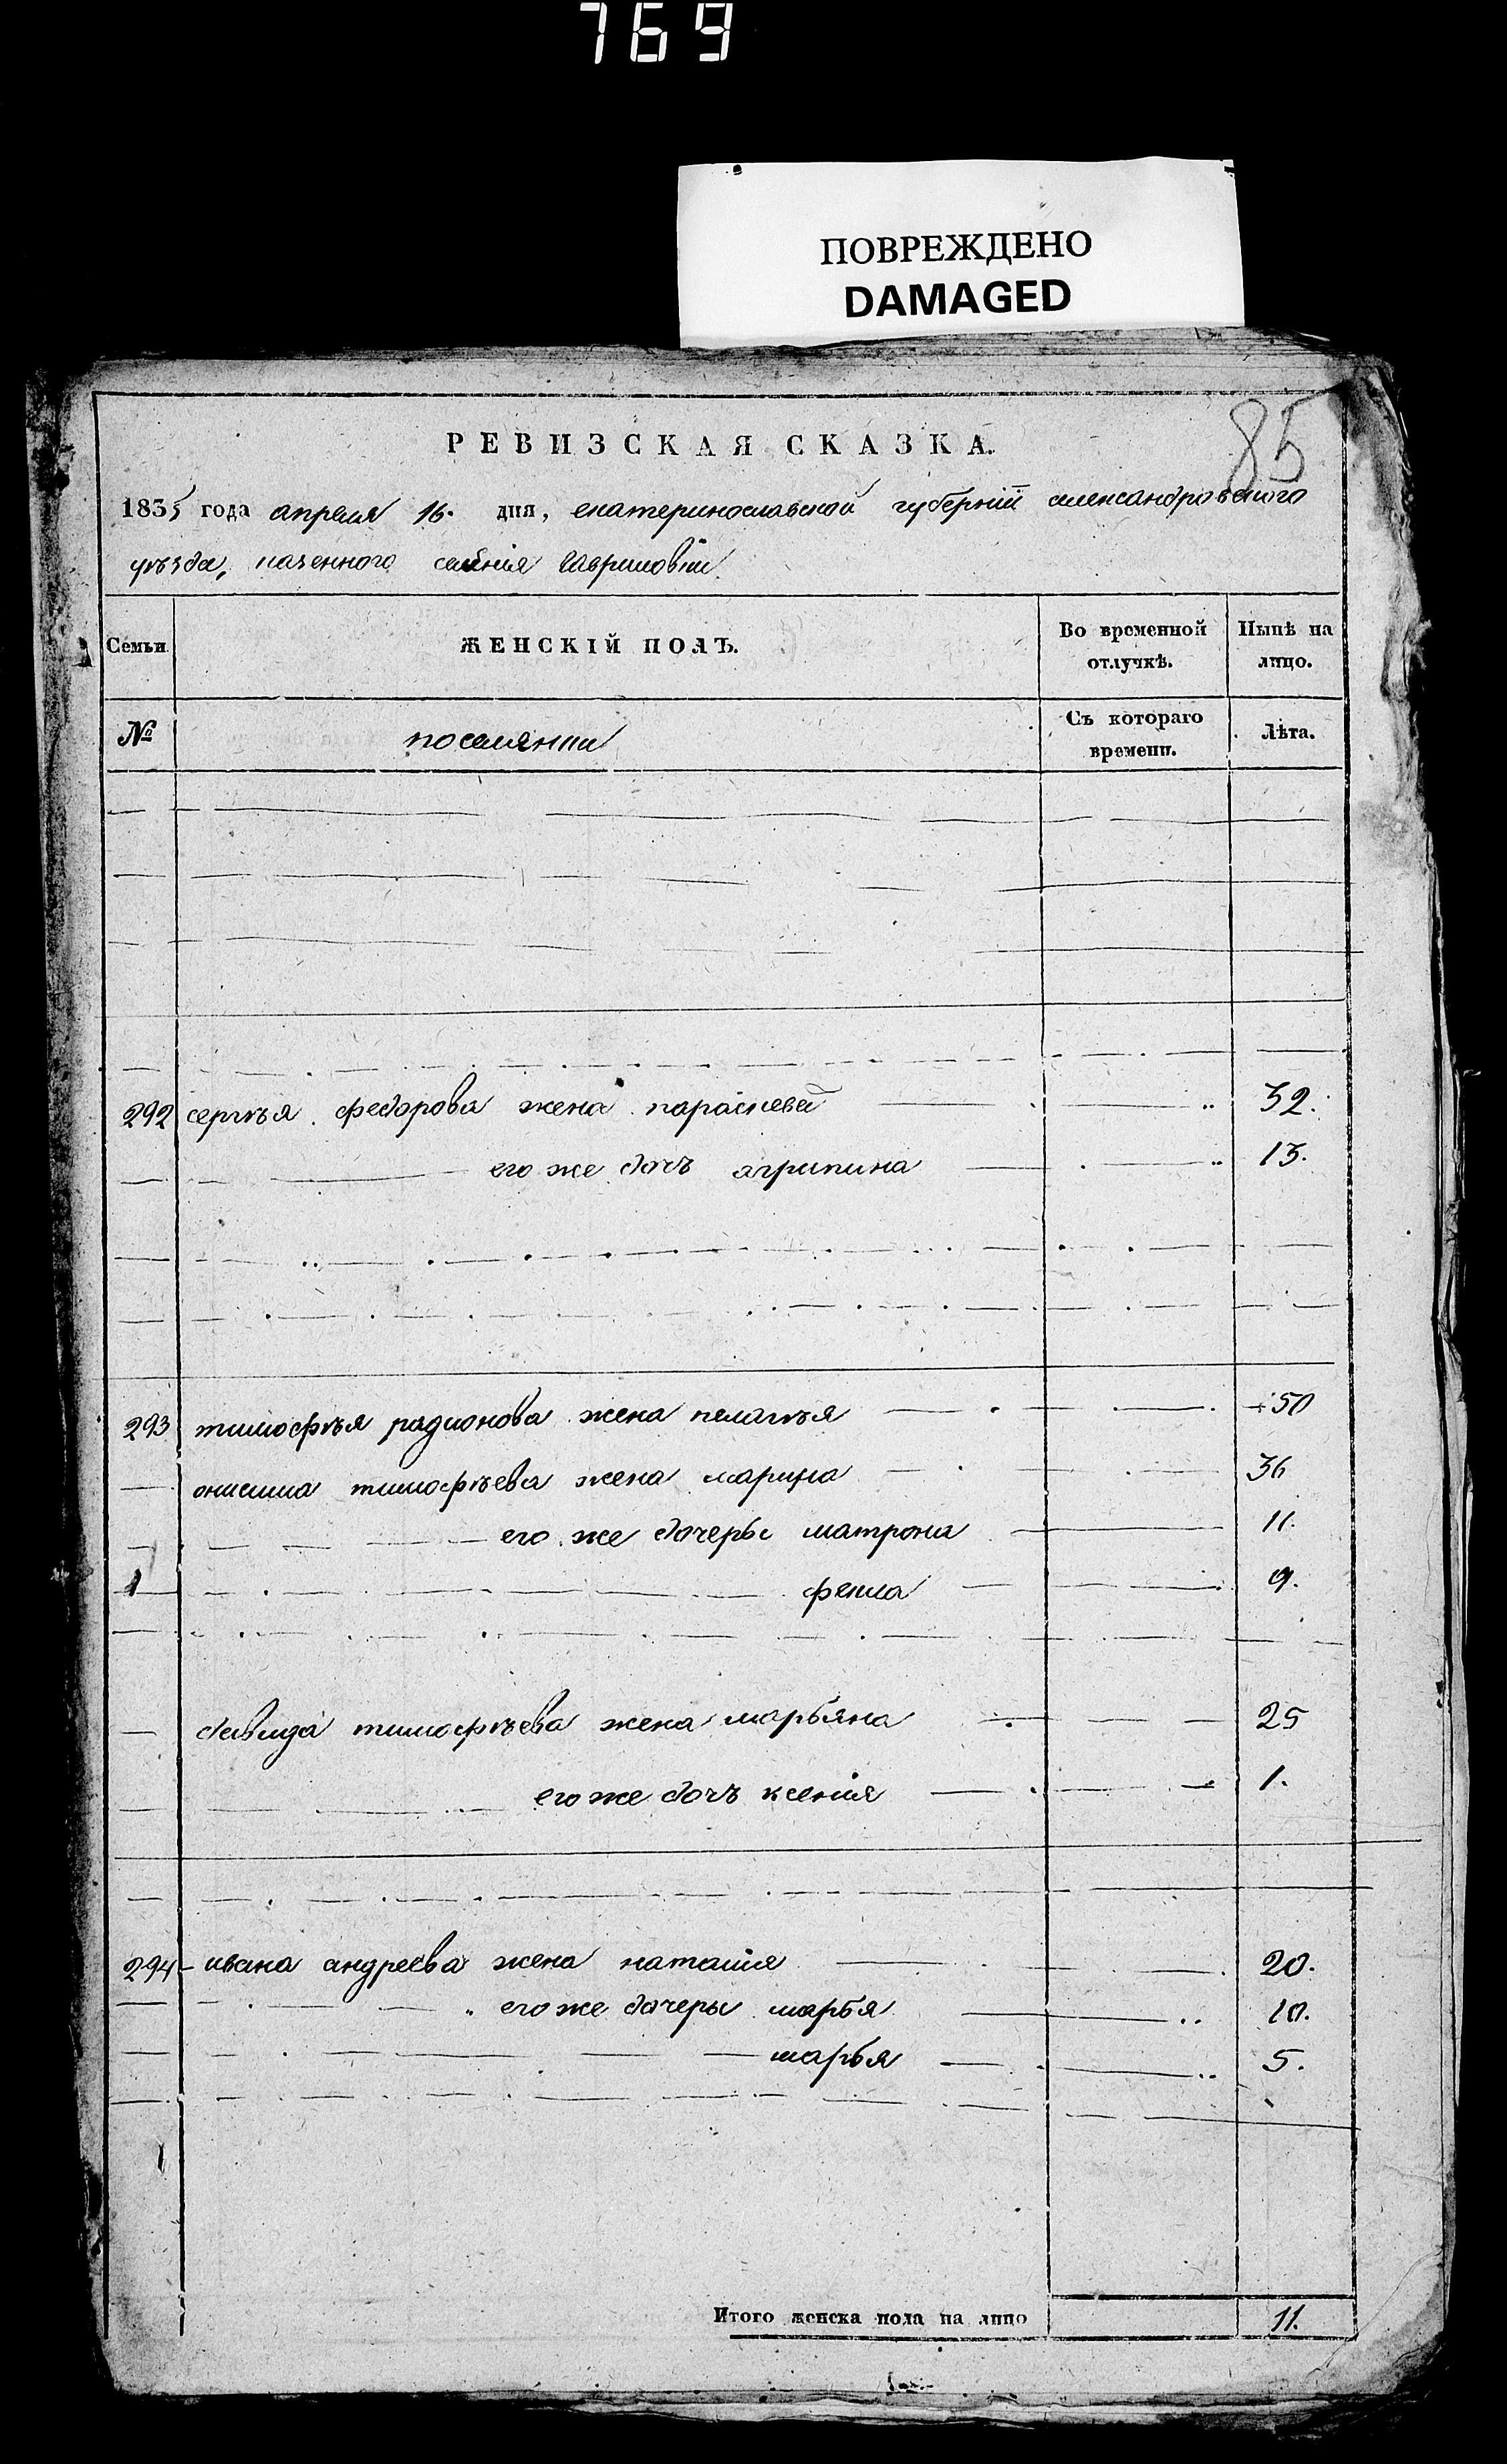 769
ПОВРЕЖДЕНО
DAMAGED
85
РЕВИЗСКАЯ СКАЗКА.
1835 года апреля 16. дня, екатеринославской губерніи александровского
уѣзда, казенного селенія Гавриловки
Семьи. ЖЕНСКІЙ ПОЛЪ. Во временной отлучкѣ. Нынѣ на лицо.
№ поселянки Съ котораго времени. Лѣта.
292 сергѣя федорова жена параскевея 32.
его же дочь агрипина 13.
293 тимофѣя радионова жена пелагѣя 50
онисима тимофѣева жена марина 36
его же дочеры матрона 11.
фекла 9.
давида тимофѣева жена марьяна 25
его же дочь ксенія 1.
294 ивана андреева жена наталія 20.
его же дочеры марья 10.
марья 5.
Итого женска пола на лицо 11.